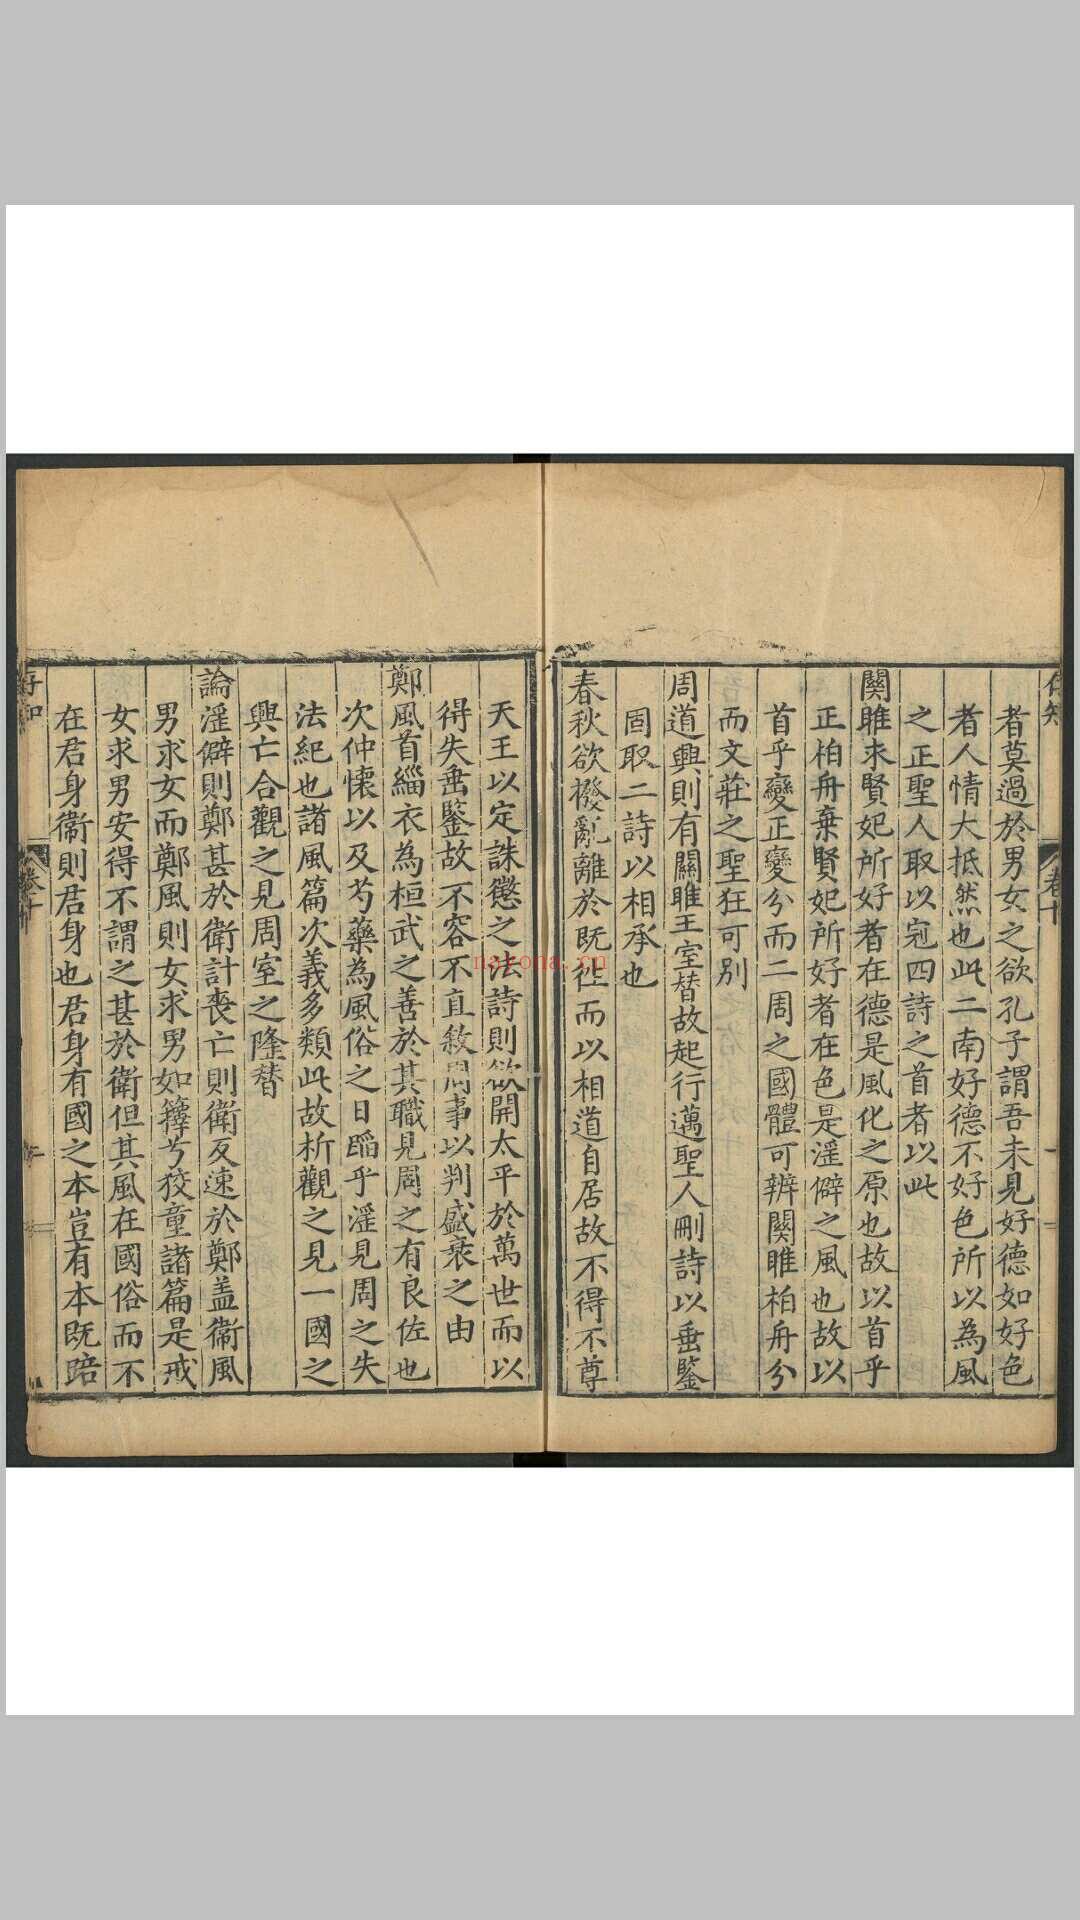 者莫過於男女之欲孔子謂吾未見好德如好色
者人情大抵然也此二南好德不好色所以為風
之正聖人取以冠四詩之首者以此
關雎求賢妃所好者在德是風化之原也故以首乎
正柏舟棄賢妃所好者在色是淫僻之風也故以
首乎變正變分而二周之國體可辨關雎柏舟分
而文莊之聖狂可別
周道興則有關雎王室替故起行邁聖人刪詩以垂鑒
固取二詩以相承也
春秋欲撥亂離於既徃而以相道自居故不得不尊
天王以定誅懲之法詩則欲開太平於萬世而以
得失垂鑒故不容不直敘周事以判盛衰之由
鄭風首緇衣為桓武之善於其職見周之有良佐也
次仲懷以及芍藥為風俗之日蹈乎淫見周之失
法紀也諸風篇次義多類此故析觀之見一國之
興亡合觀之見周室之隆替
論淫僻則鄭甚於衛計喪亡則衛反速於鄭盖衛風
男求女而鄭風則女求男如籜兮狡童諸篇是戒
女求男安得不謂之甚於衛但其風在國俗而不
在君身衛則君身也君身有國之本豈有本既踣
卷十
nayona.cn